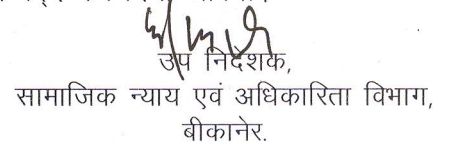 उप निदेशक,
सामाजिक न्याय एवं अधिकारिता विभाग,
बीकानेर.